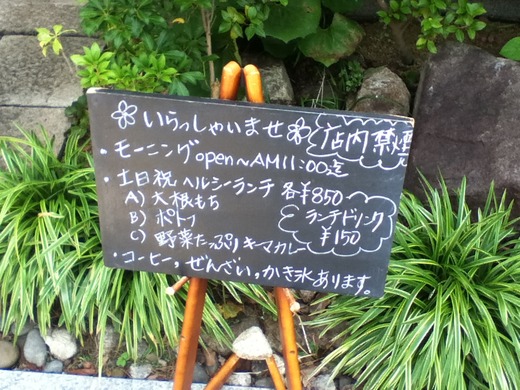 いらっしゃいませ
店内禁煙
・モーニングopen～AM11:00迄
・土日祝ヘルシーランチ 各¥850
A) 大根もち
B) ポトフ
C) 野菜たっぷりキーマカレー
ランチドリンク
¥150
・コーヒー、ぜんざい、かき氷あります。